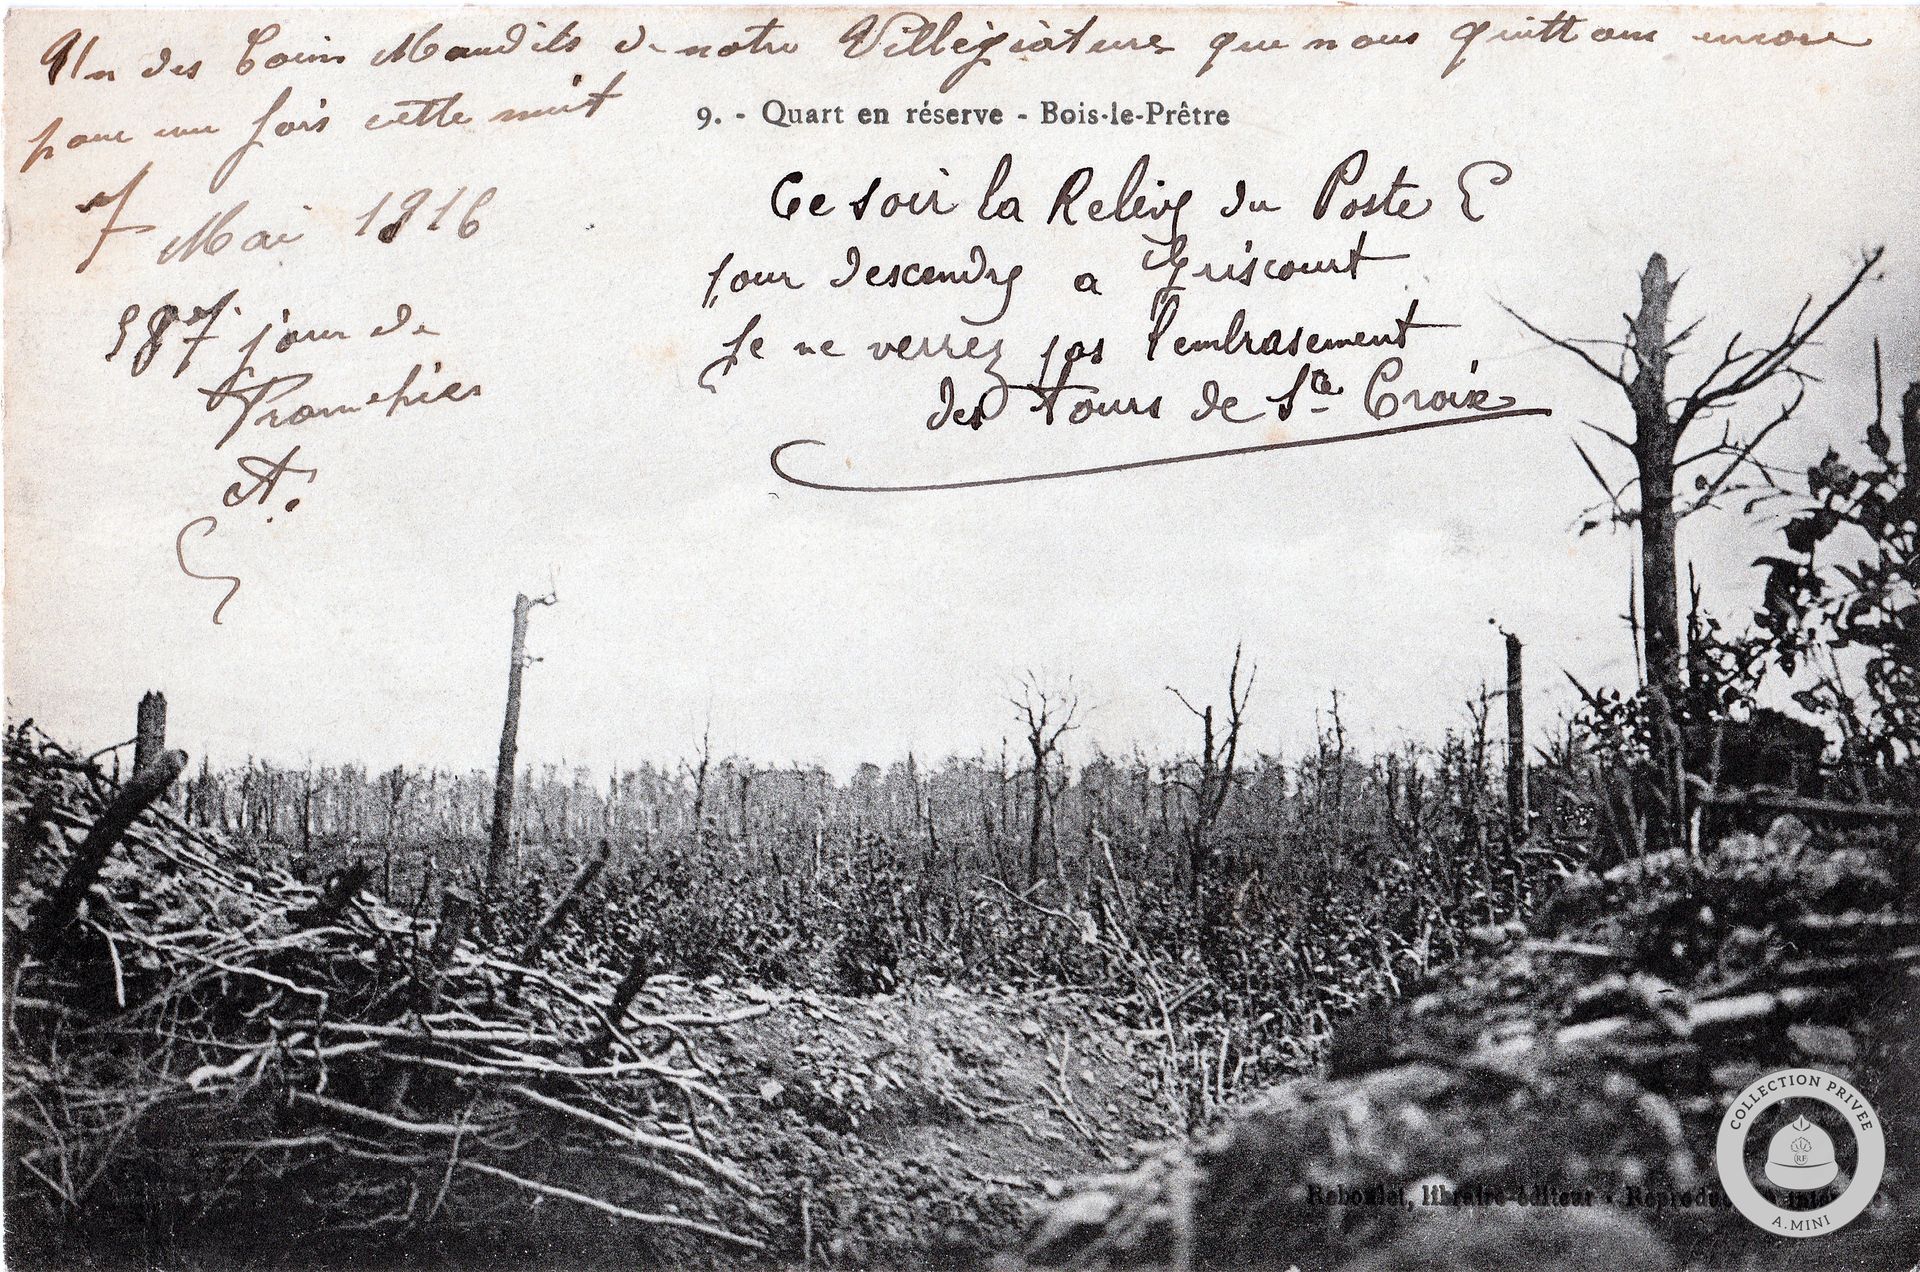 Un des Coins Maudits de notre Villégiature que nous quittons encore
pour une fois cette nuit
9. - Quart en réserve - Bois-le-Prêtre
7 Mai 1916
587 jour de
Tranchées
A.
Ce soir la Relève du Poste E
pour descendre a Griscourt
Je ne verrez pas l'embrasement
des Tours de Ste Croix
Reboulet, libraire-éditeur - Reproduction
COLLECTION PRIVEE
RF
A.MINI